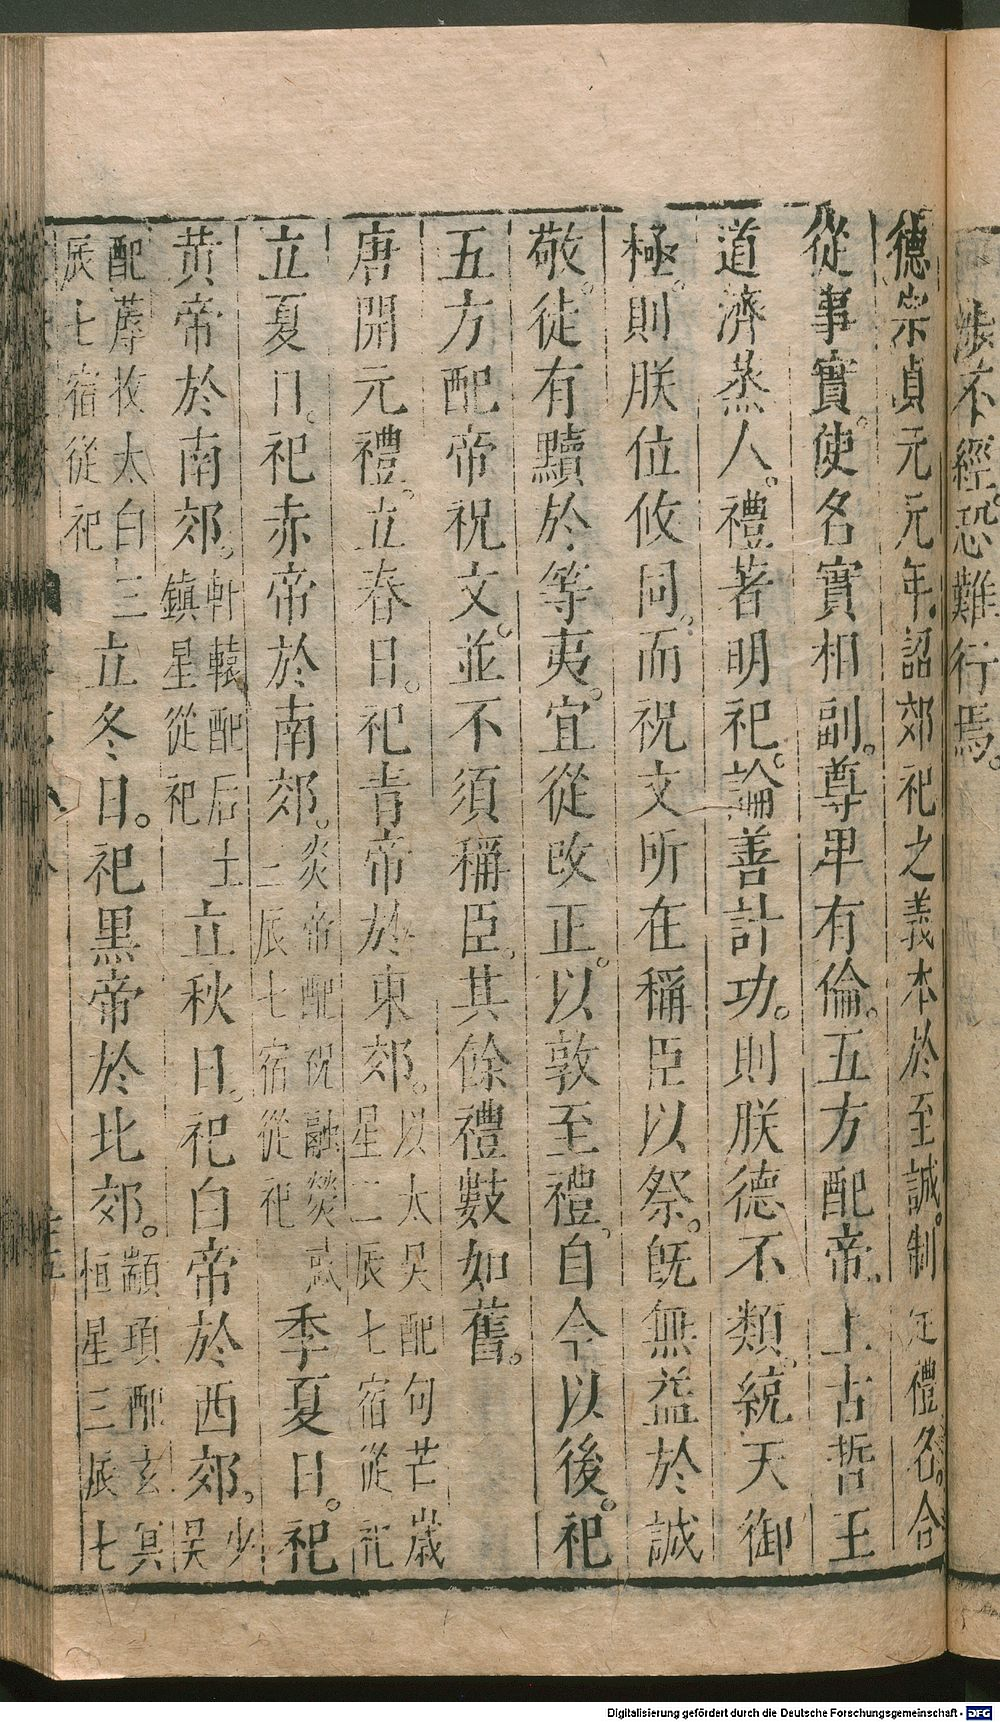 涉不經。恐難行焉。
德宗貞元元年。詔郊祀之義本於至誠。制定禮名。合
從事實。使名實相副。尊卑有倫。五方配帝。上古哲王
道濟蒸人。禮著明祀。論善計功。則朕德不類。統天御
極。則朕位攸同。而祝文所在稱臣以祭。旣無益於誠
敬。徒有黷於等夷。宜從改正。以敦至禮。自今以後。祀
五方配帝祝文。並不須稱臣。其餘禮數如舊。
唐開元禮。立春日。祀青帝於東郊。以太昊配句芒歲星三辰七宿從祀
立夏日。祀赤帝於南郊。炎帝配祝融熒惑三辰七宿從祀季夏日。祀
黃帝於南郊。軒轅配后土鎮星從祀立秋日。祀白帝於西郊。少昊
配蓐收太白三辰七宿從祀立冬日。祀黑帝於北郊。顓頊配玄冥恒星三辰七
Digitalisierung gefördert durch die Deutsche Forschungsgemeinschaft - DFG